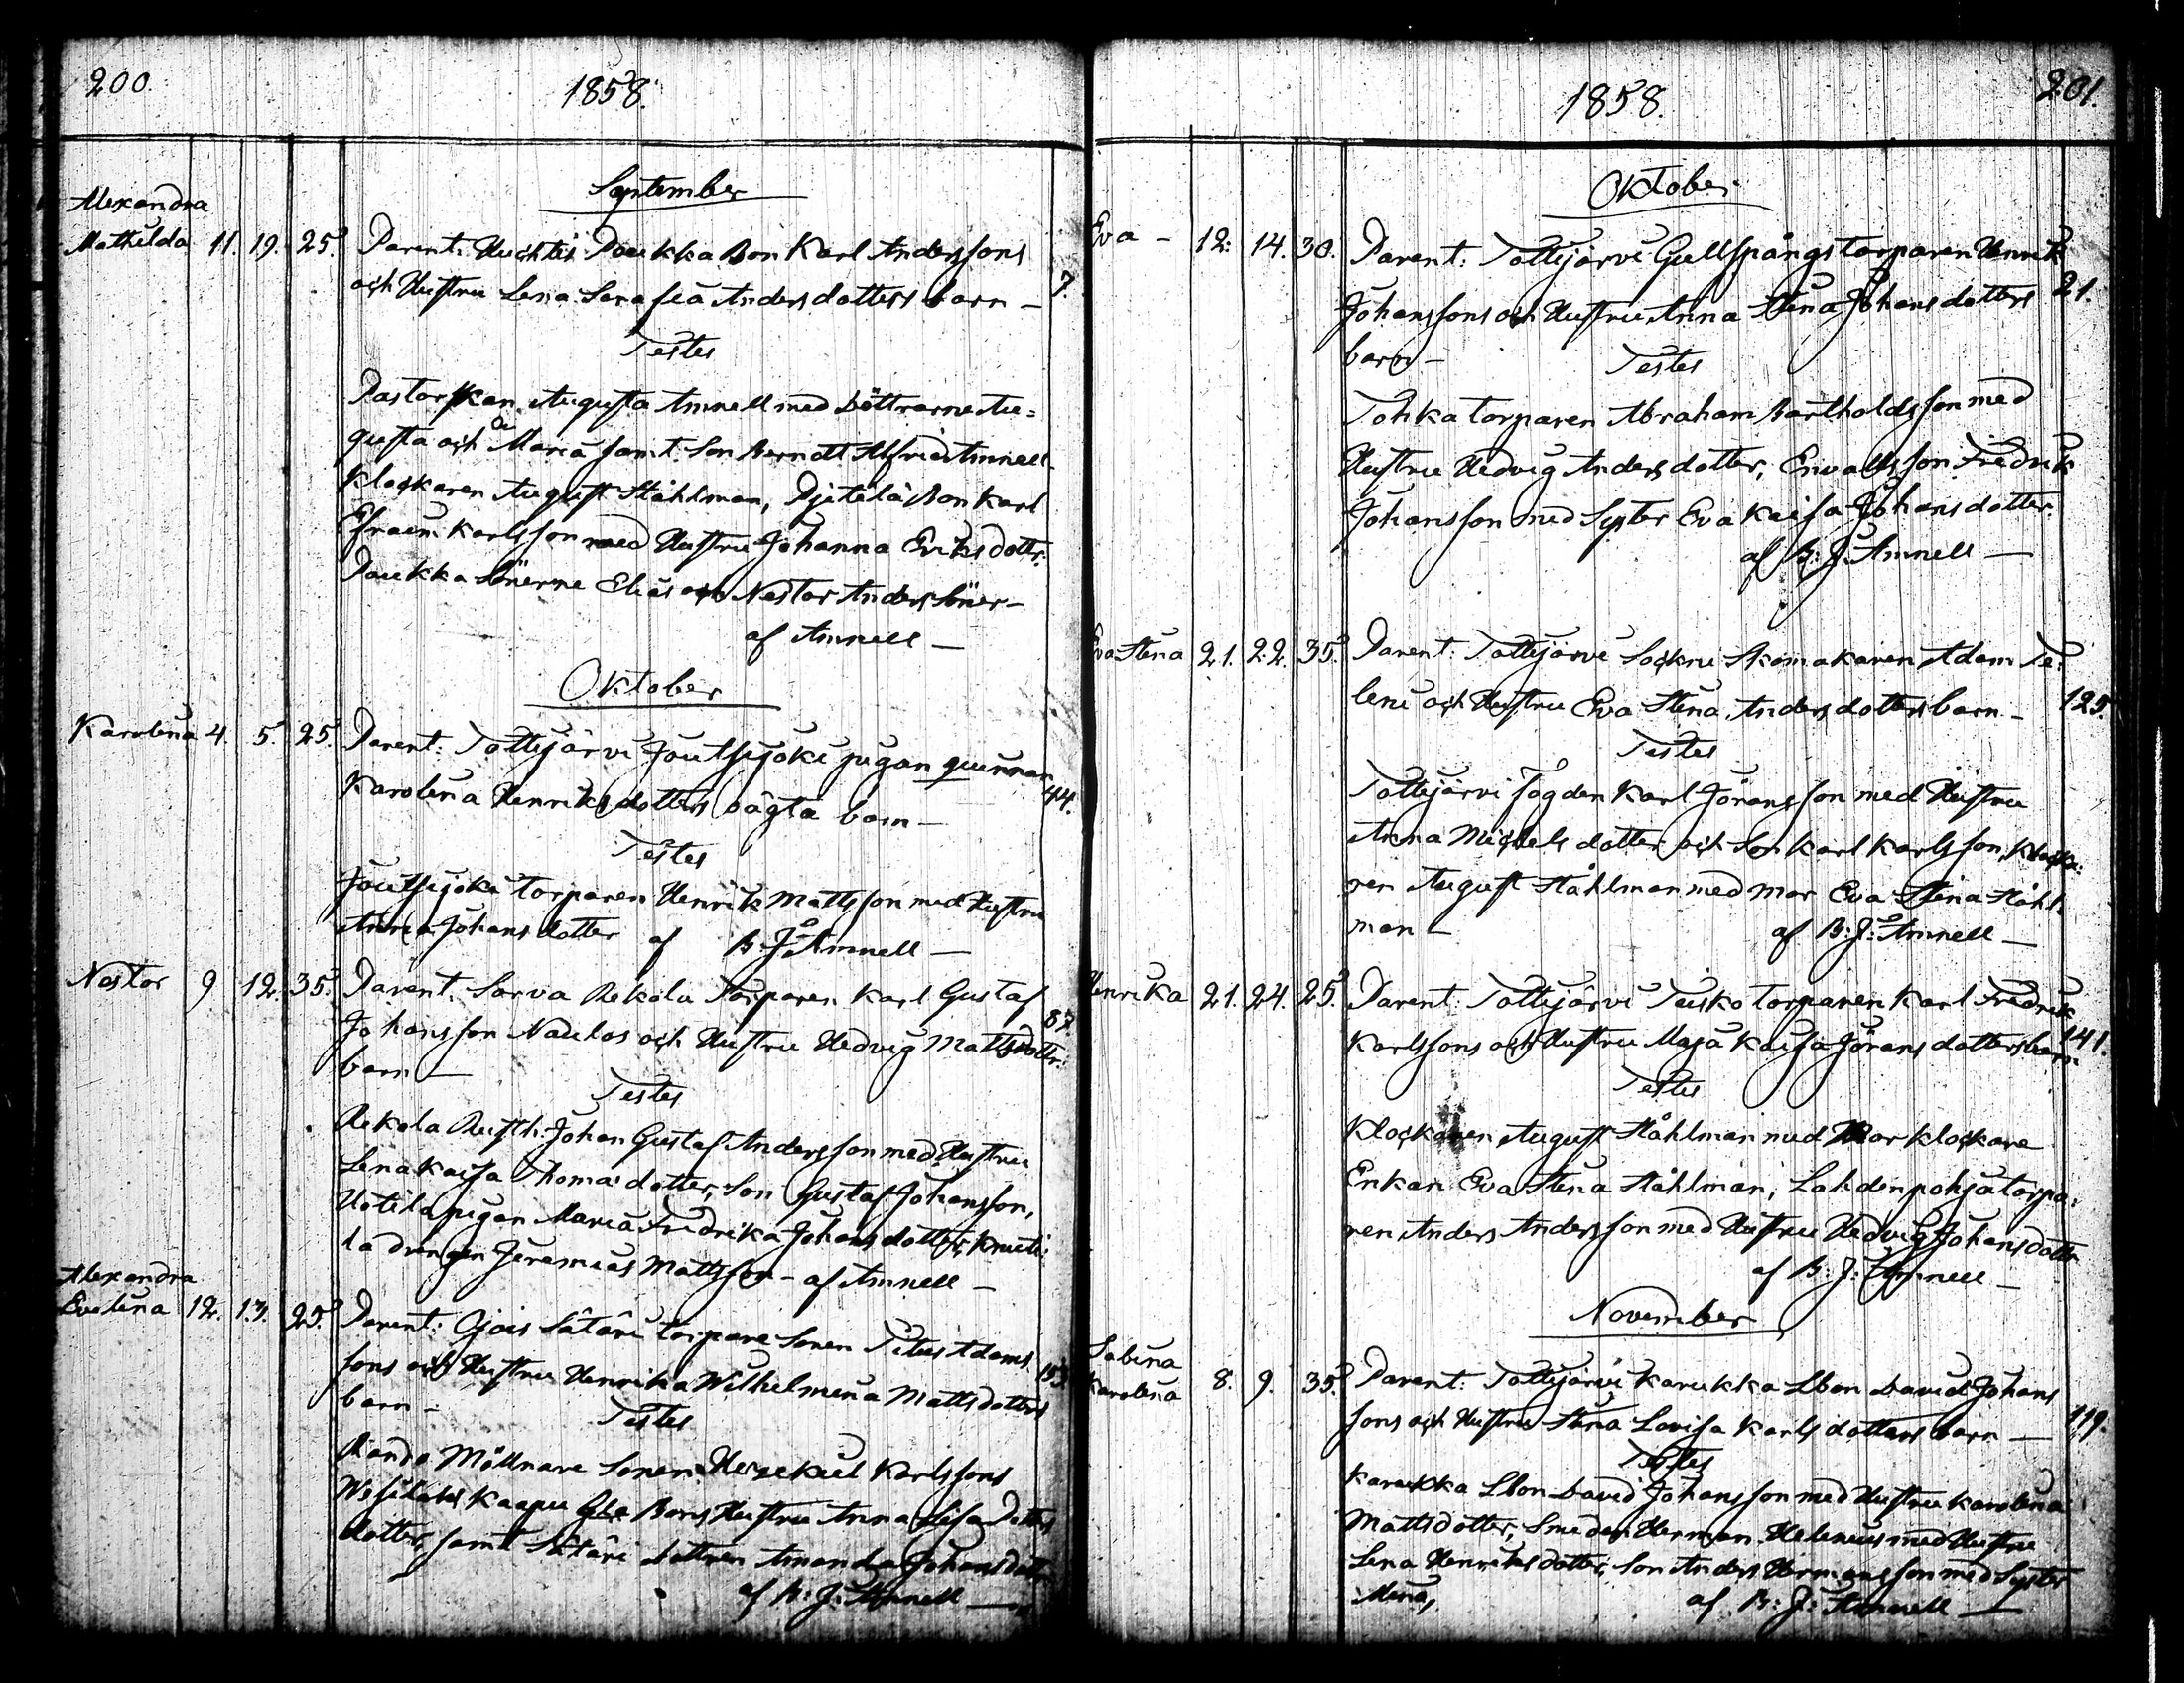 200.
1858.
September
Alexandra
Mathilda 11. 19. 25. Parent: Huchtis Paukka Bon Karl Anderssons
och Hustru Lena Serafia Andersdotters barn — 7.
Testes
Pastorskan Augusta Amnell med Döttrarne Au=
gusta och Maria samt Son Berndt Alfrid Amnell
Klockaren August Ståhlman, Pjetilä Bon Karl
Efraim Karlsson med Hustru Johanna Eriksdottr.
Paukka Sönerne Elias och Nestor Anders Söner —
af Amnell —
Oktober
Karolina 4. 5. 25. Parent: Tottijärvi Joutsijoki pigan qvinnan
Karolina Henriksdotters oägta barn — 44.
Testes
Joutsijoki torparen Henrik Mattsson med Hustru
Anna Johansdotter af B: J: Amnell —
Nestor 9 12. 35. Parent: Sarva Rekola Torparen Karl Gustaf
Johansson Naulos och Hustru Hedvig Mattsdottr: 87.
barn —
Testes
Rekola Rusth: Johan Gustaf Andersson med Hustru
Lena Kaisa Thomasdotter, Son Gustaf Johansson,
Uotila pigan Maria Fredrika Johansdotter, Knuti:
la drengen Jeremias Mattsson — af Amnell —
Alexandra
Evelina 12. 13. 25. Parent: Ojois Säteri torpare Sonen Titus Adams
sons och Hustru Henrika Wilhelmina Mattsdotters 153.
barn —
Testes
Mölnare Sonen Hesekiel Karlssons
Kaapu Bons Hustru Anna Lisa
dotter, samt Säteri dottren Amanda Johansdottr
af B: J: Amnell —
1858.
201.
Oktober
Eva — 12. 14. 30. Parent: Tottijärvi Gullspångs torparen Henrik
Johanssons och Hustru Anna Stina Johansdotters 21.
barn —
Testes
Tohka torparen Abraham Bartholdsson med
Hustru Hedvig Andersdotter, Envallsson Fredrik
Johansson med Syster Eva Kaisa Johansdotter.
af B: J: Amnell —
Eva Stina 21. 22. 35. Parent: Tottijärvi Sockne Skomakaren Adam Te:
leni och Hustru Eva Stina Andersdotters barn — 125.
Testes
Tottijärvi fogden Karl Jöransson med Hustru
Anna Michelsdotter och Son Karl Karlsson, Klocka:
ren August Ståhlman med mor Eva Stina Ståhl:
man — af B: J: Amnell —
Henrika 21. 24. 25. Parent: Tottijärvi Teisko torparen Karl Fredrik
Karlssons och Hustru Maja Kaisa Jöransdotters barn 141.
Testes
Klockaren August Ståhlman med Mor Klockare
Enkan Eva Stina Ståhlman, Lahdenpohja torpa:
ren Anders Andersson med Hustru Hedvig Johansdottr
af B: J: Amnell —
November
Sabina
Karolina 8. 9. 35. Parent: Tottijärvi Karukka Lbon David Johans
sons och Hustru Stina Lovisa Karlsdotters barn — 119.
Testes
Karukka Lbon David Johansson med Hustru Karolina
Mattsdotter, Smeden Herman Helenius med Hustru
Lena Henriksdotter, Son Anders Hermansson med Syster
Mina, af B: J: Amnell —